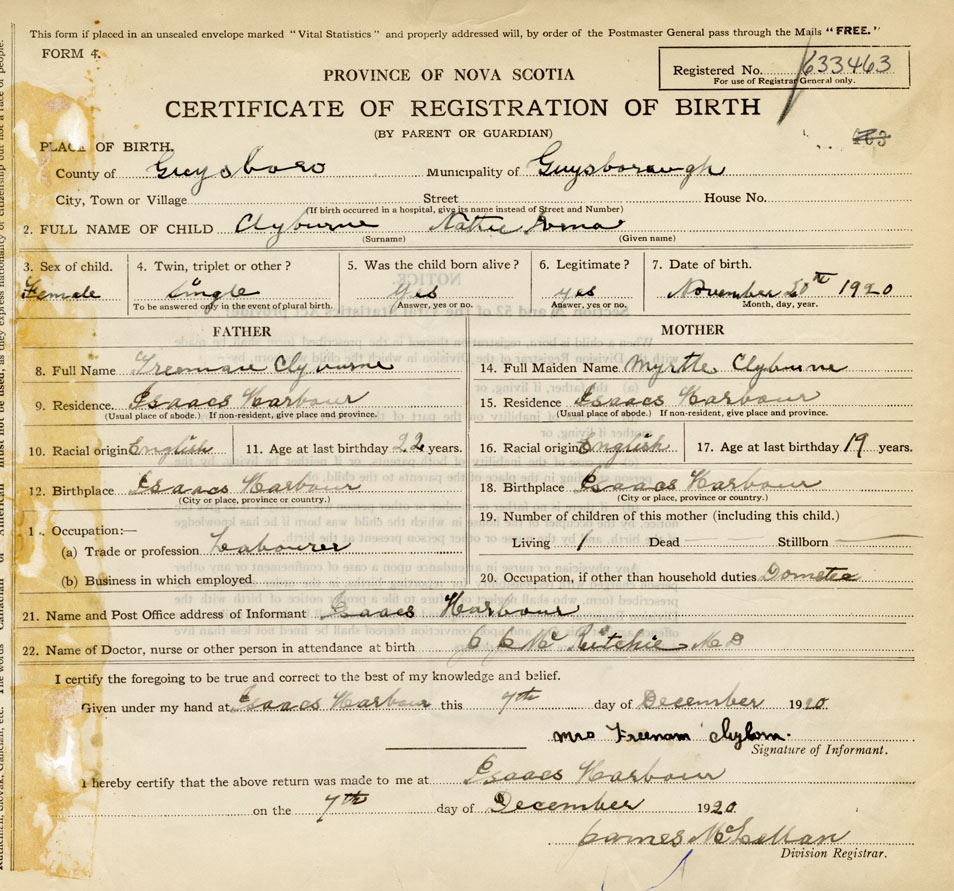 This form if placed in an unsealed envelope marked "Vital Statistics" and properly addressed will, by order of the Postmaster General pass through the Mails "FREE."
FORM 4.
Registered No. 633463
For use of Registrar General only.
PROVINCE OF NOVA SCOTIA
CERTIFICATE OF REGISTRATION OF BIRTH
(BY PARENT OR GUARDIAN)
PLACE OF BIRTH.
County of Guysboro Municipality of Guysborough
City, Town or Village Street House No.
(If birth occurred in a hospital, give its name instead of Street and Number)
2. FULL NAME OF CHILD Clyburne
(Surname) (Given name)
3. Sex of child. 4. Twin, triplet or other? 5. Was the child born alive? 6. Legitimate? 7. Date of birth.
Female Single Yes yes November 20th 1920
To be answered only in the event of plural birth. Answer, yes or no. Answer, yes or no. Month, day, year.
FATHER MOTHER
8. Full Name Freeman Clyburne 14. Full Maiden Name Myrtle Clyburne
9. Residence Isaacs Harbour 15. Residence Isaacs Harbour
(Usual place of abode.) If non-resident, give place and province. (Usual place of abode.) If non-resident, give place and province.
10. Racial origin English 11. Age at last birthday 22 years. 16. Racial origin English 17. Age at last birthday 19 years.
12. Birthplace Isaacs Harbour 18. Birthplace Isaacs Harbour
(City or place, province or country.) (City or place, province or country.)
1 . Occupation:— 19. Number of children of this mother (including this child.)
(a) Trade or profession Labourer Living 1 Dead — Stillborn —
(b) Business in which employed 20. Occupation, if other than household duties
21. Name and Post Office address of Informant Isaacs Harbour
22. Name of Doctor, nurse or other person in attendance at birth Ritchie MD
I certify the foregoing to be true and correct to the best of my knowledge and belief.
Given under my hand at Isaacs Harbour this 7th day of December 1920.
Mrs Freeman Clyborn.
Signature of Informant.
I hereby certify that the above return was made to me at Isaacs Harbour
on the 7th day of December 1920
James McLellan
Division Registrar.